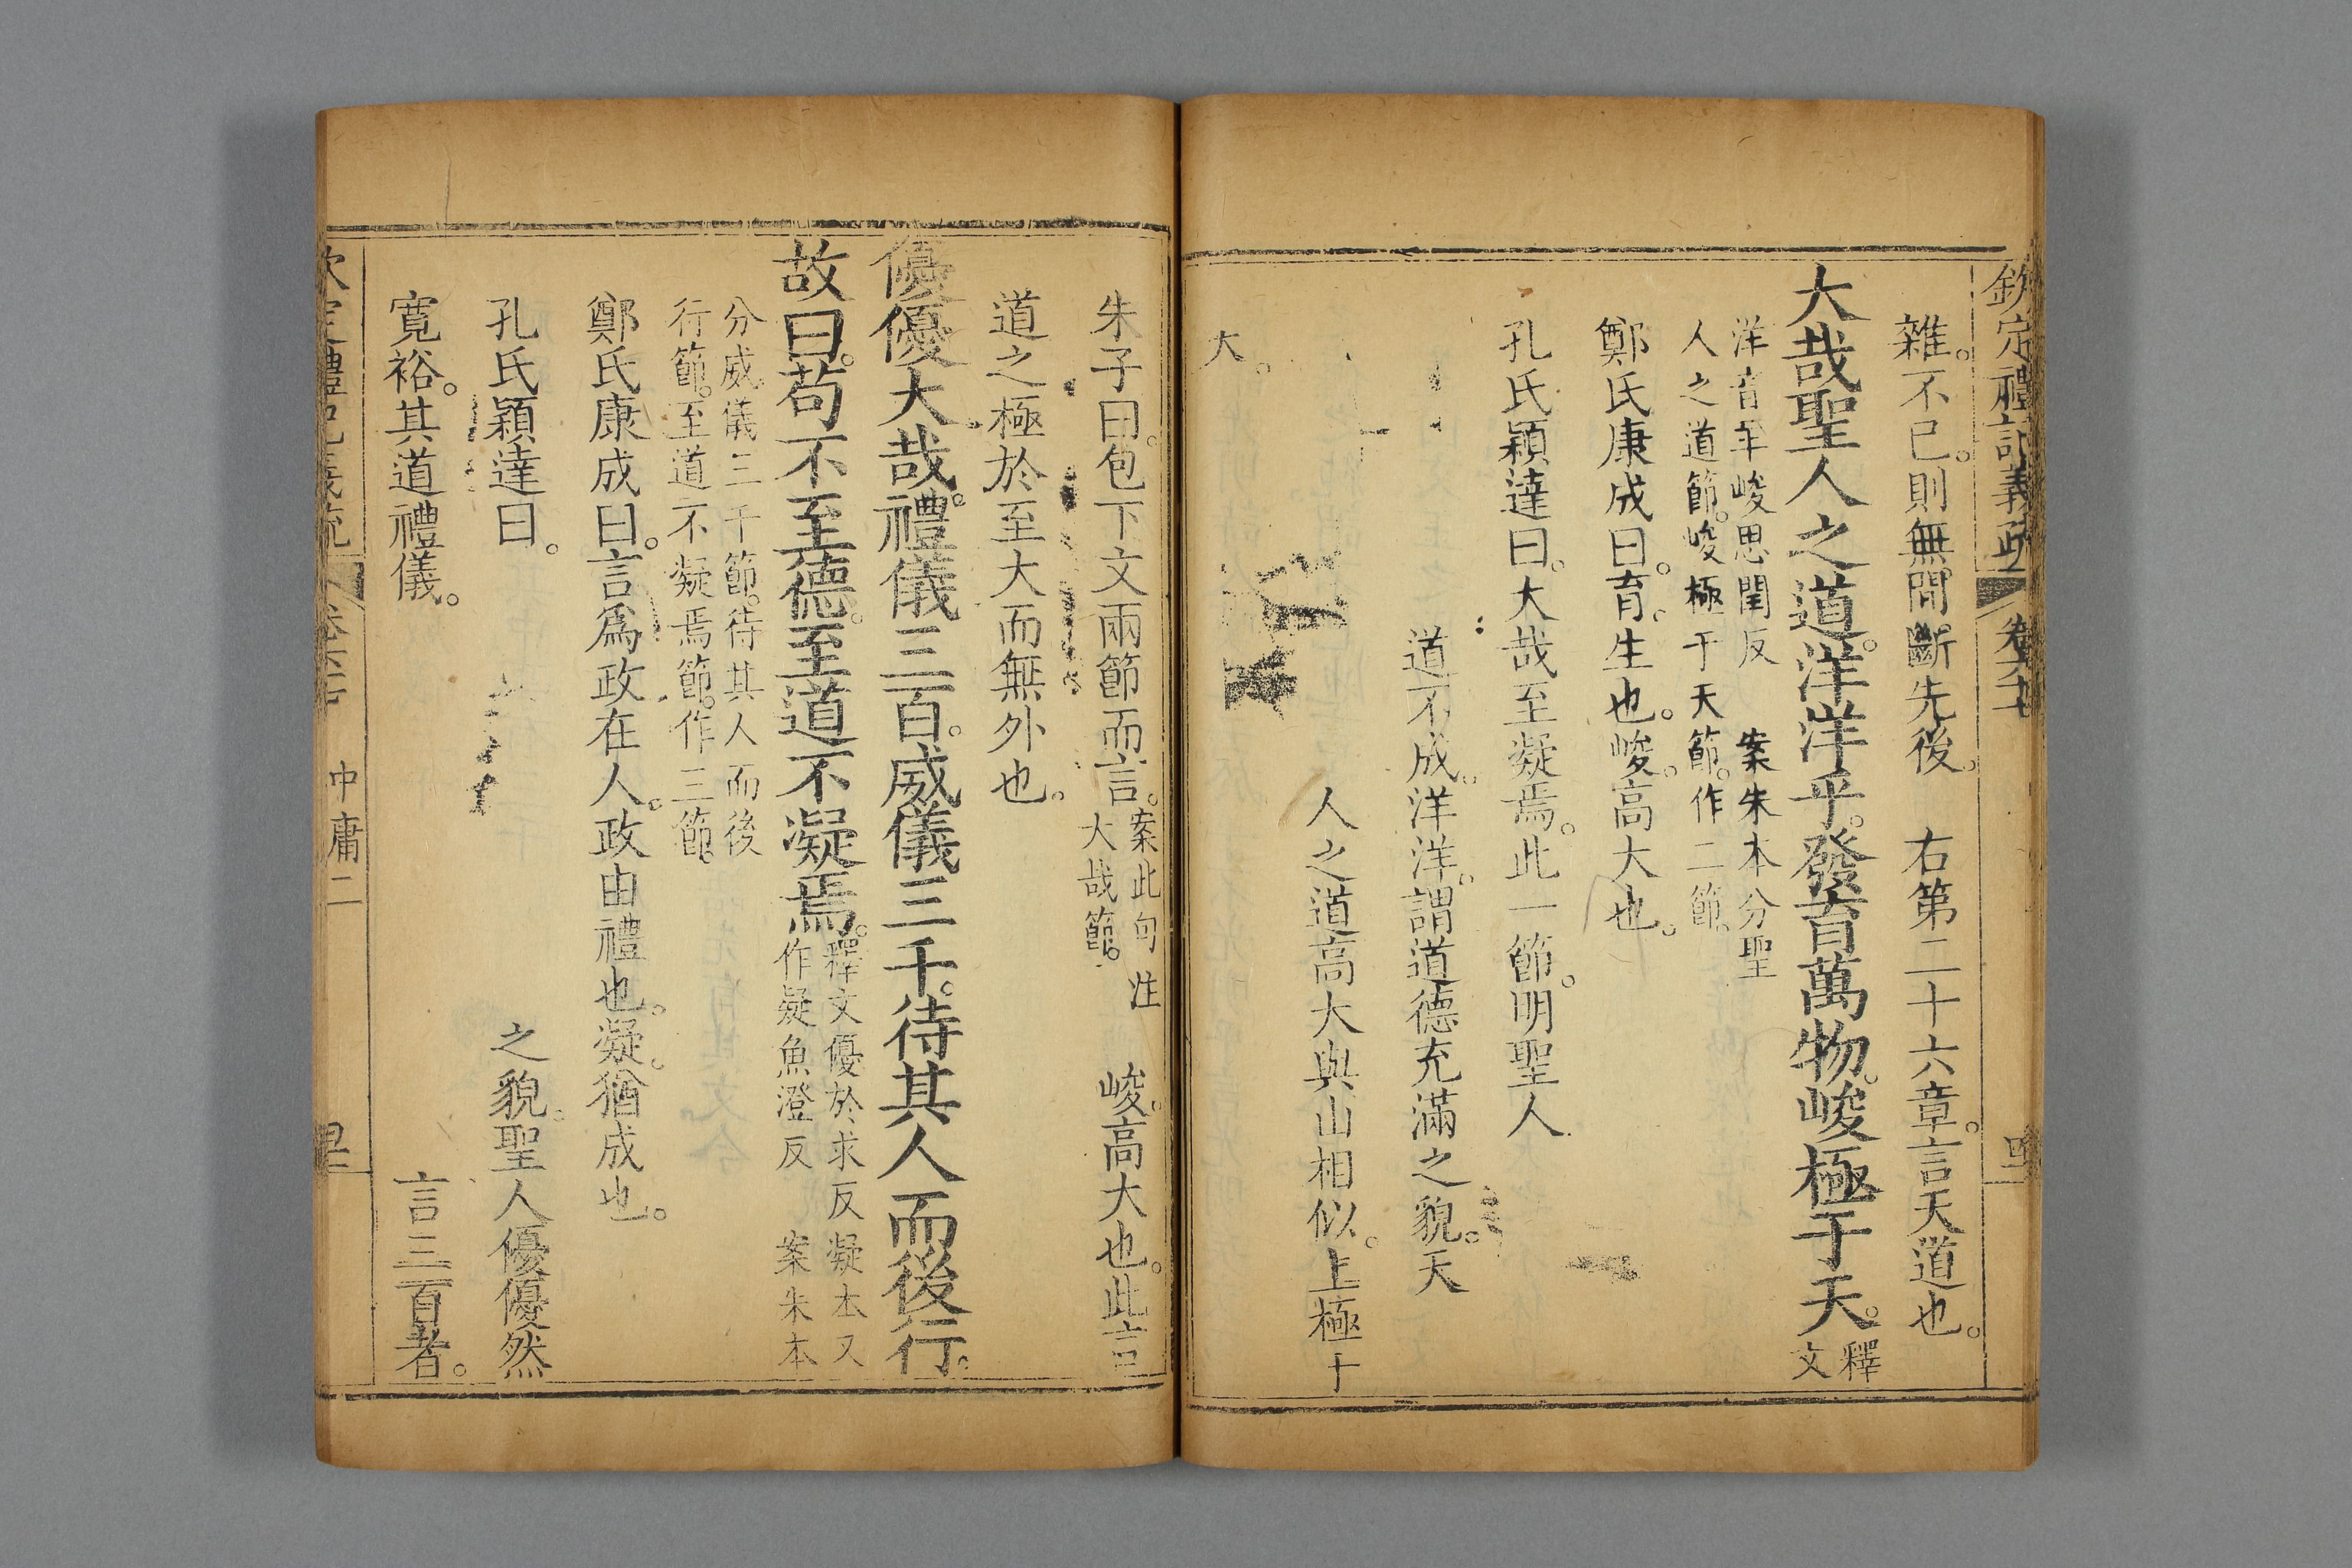 欽定禮記義疏 卷六十七
雜。不已。則無間斷先後。 右第二十六章。言天道也。
大哉聖人之道。洋洋乎。發育萬物。峻極于天。釋文
洋音羊峻思閏反 案朱本分聖
人之道節。峻極于天節。作二節。
鄭氏康成曰。育。生也。峻。高大也。
孔氏穎達曰。大哉至凝焉。此一節。明聖人
道不成。洋洋。謂道德充滿之貌。天
人之道高大與山相似。上極于
大。
朱子曰。包下文兩節而言。案此句注大哉節。 峻。高大也。此言
道之極於至大而無外也。
優優大哉。禮儀三百。威儀三千。待其人而後行。
故曰。苟不至德。至道不凝焉。釋文優於求反凝本又作疑魚澄反 案朱本
分威儀三千節。待其人而後
行節。至道不凝焉節。作三節。
鄭氏康成曰。言爲政在人。政由禮也。凝。猶成也。
孔氏穎達曰。 之貌。聖人優優然
寬裕。其道禮儀。 言三百者。
中庸二